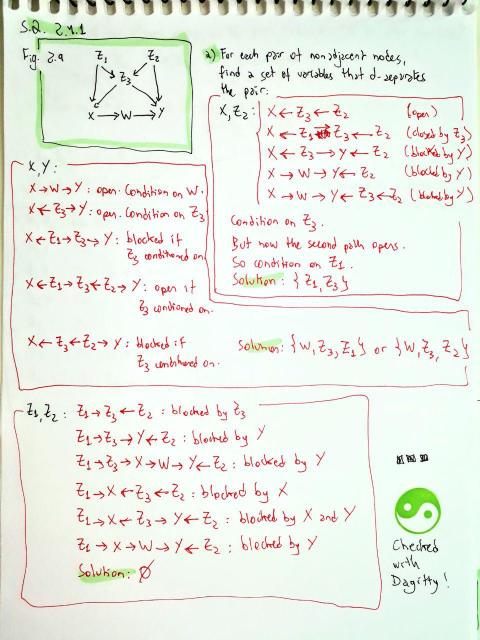 S.Q. 2.4.1
Fig. 2.9
Z1 Z2
Z3
X → W → Y
a) For each pair of nonadjacent nodes,
find a set of variables that d-separates
the pair:
X, Z2: X ← Z3 ← Z2 (open)
X ← Z1 → Z3 ← Z2 (closed by Z3)
X ← Z3 → Y ← Z2 (blocked by Y)
X → W → Y ← Z2 (blocked by Y)
X → W → Y ← Z3 ← Z2 (blocked by Y)
Condition on Z3.
But now the second path opens.
So condition on Z1.
Solution: {Z1, Z3}
X, Y:
X → W → Y: open. Condition on W.
X ← Z3 → Y: open. Condition on Z3
X ← Z1 → Z3 → Y: blocked if
Z3 conditioned on.
X ← Z1 → Z3 ← Z2 → Y: open if
Z3 conditioned on.
X ← Z3 ← Z2 → Y: blocked if
Z3 conditioned on.
Solution: {W, Z3, Z1} or {W, Z3, Z2}
Z1, Z2: Z1 → Z3 ← Z2: blocked by Z3
Z1 → Z3 → Y ← Z2: blocked by Y
Z1 → Z3 → X → W → Y ← Z2: blocked by Y
Z1 → X ← Z3 ← Z2: blocked by X
Z1 → X ← Z3 → Y ← Z2: blocked by X and Y
Z1 → X → W → Y ← Z2: blocked by Y
Solution: ∅
Checked
with
Dagitty!